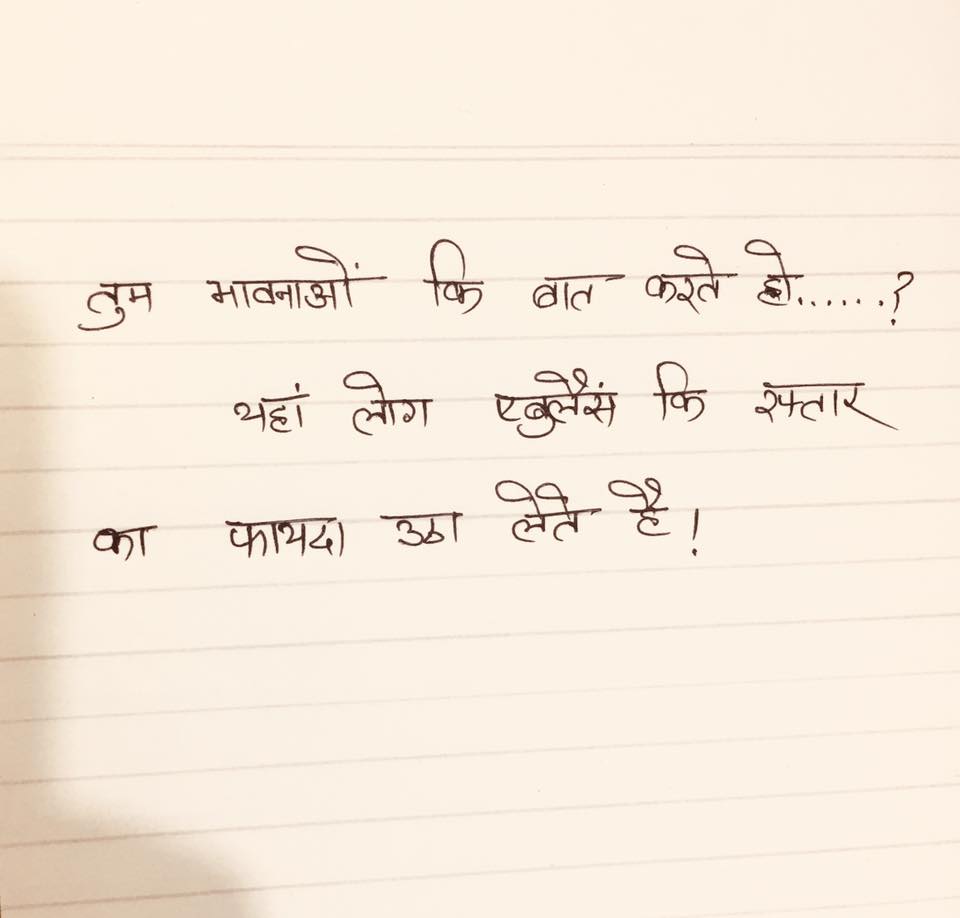 तुम भावनाओं कि बात करते हो......?
यहां लोग एबुलैसं कि रफ्तार
का फायदा उठा लेते है!